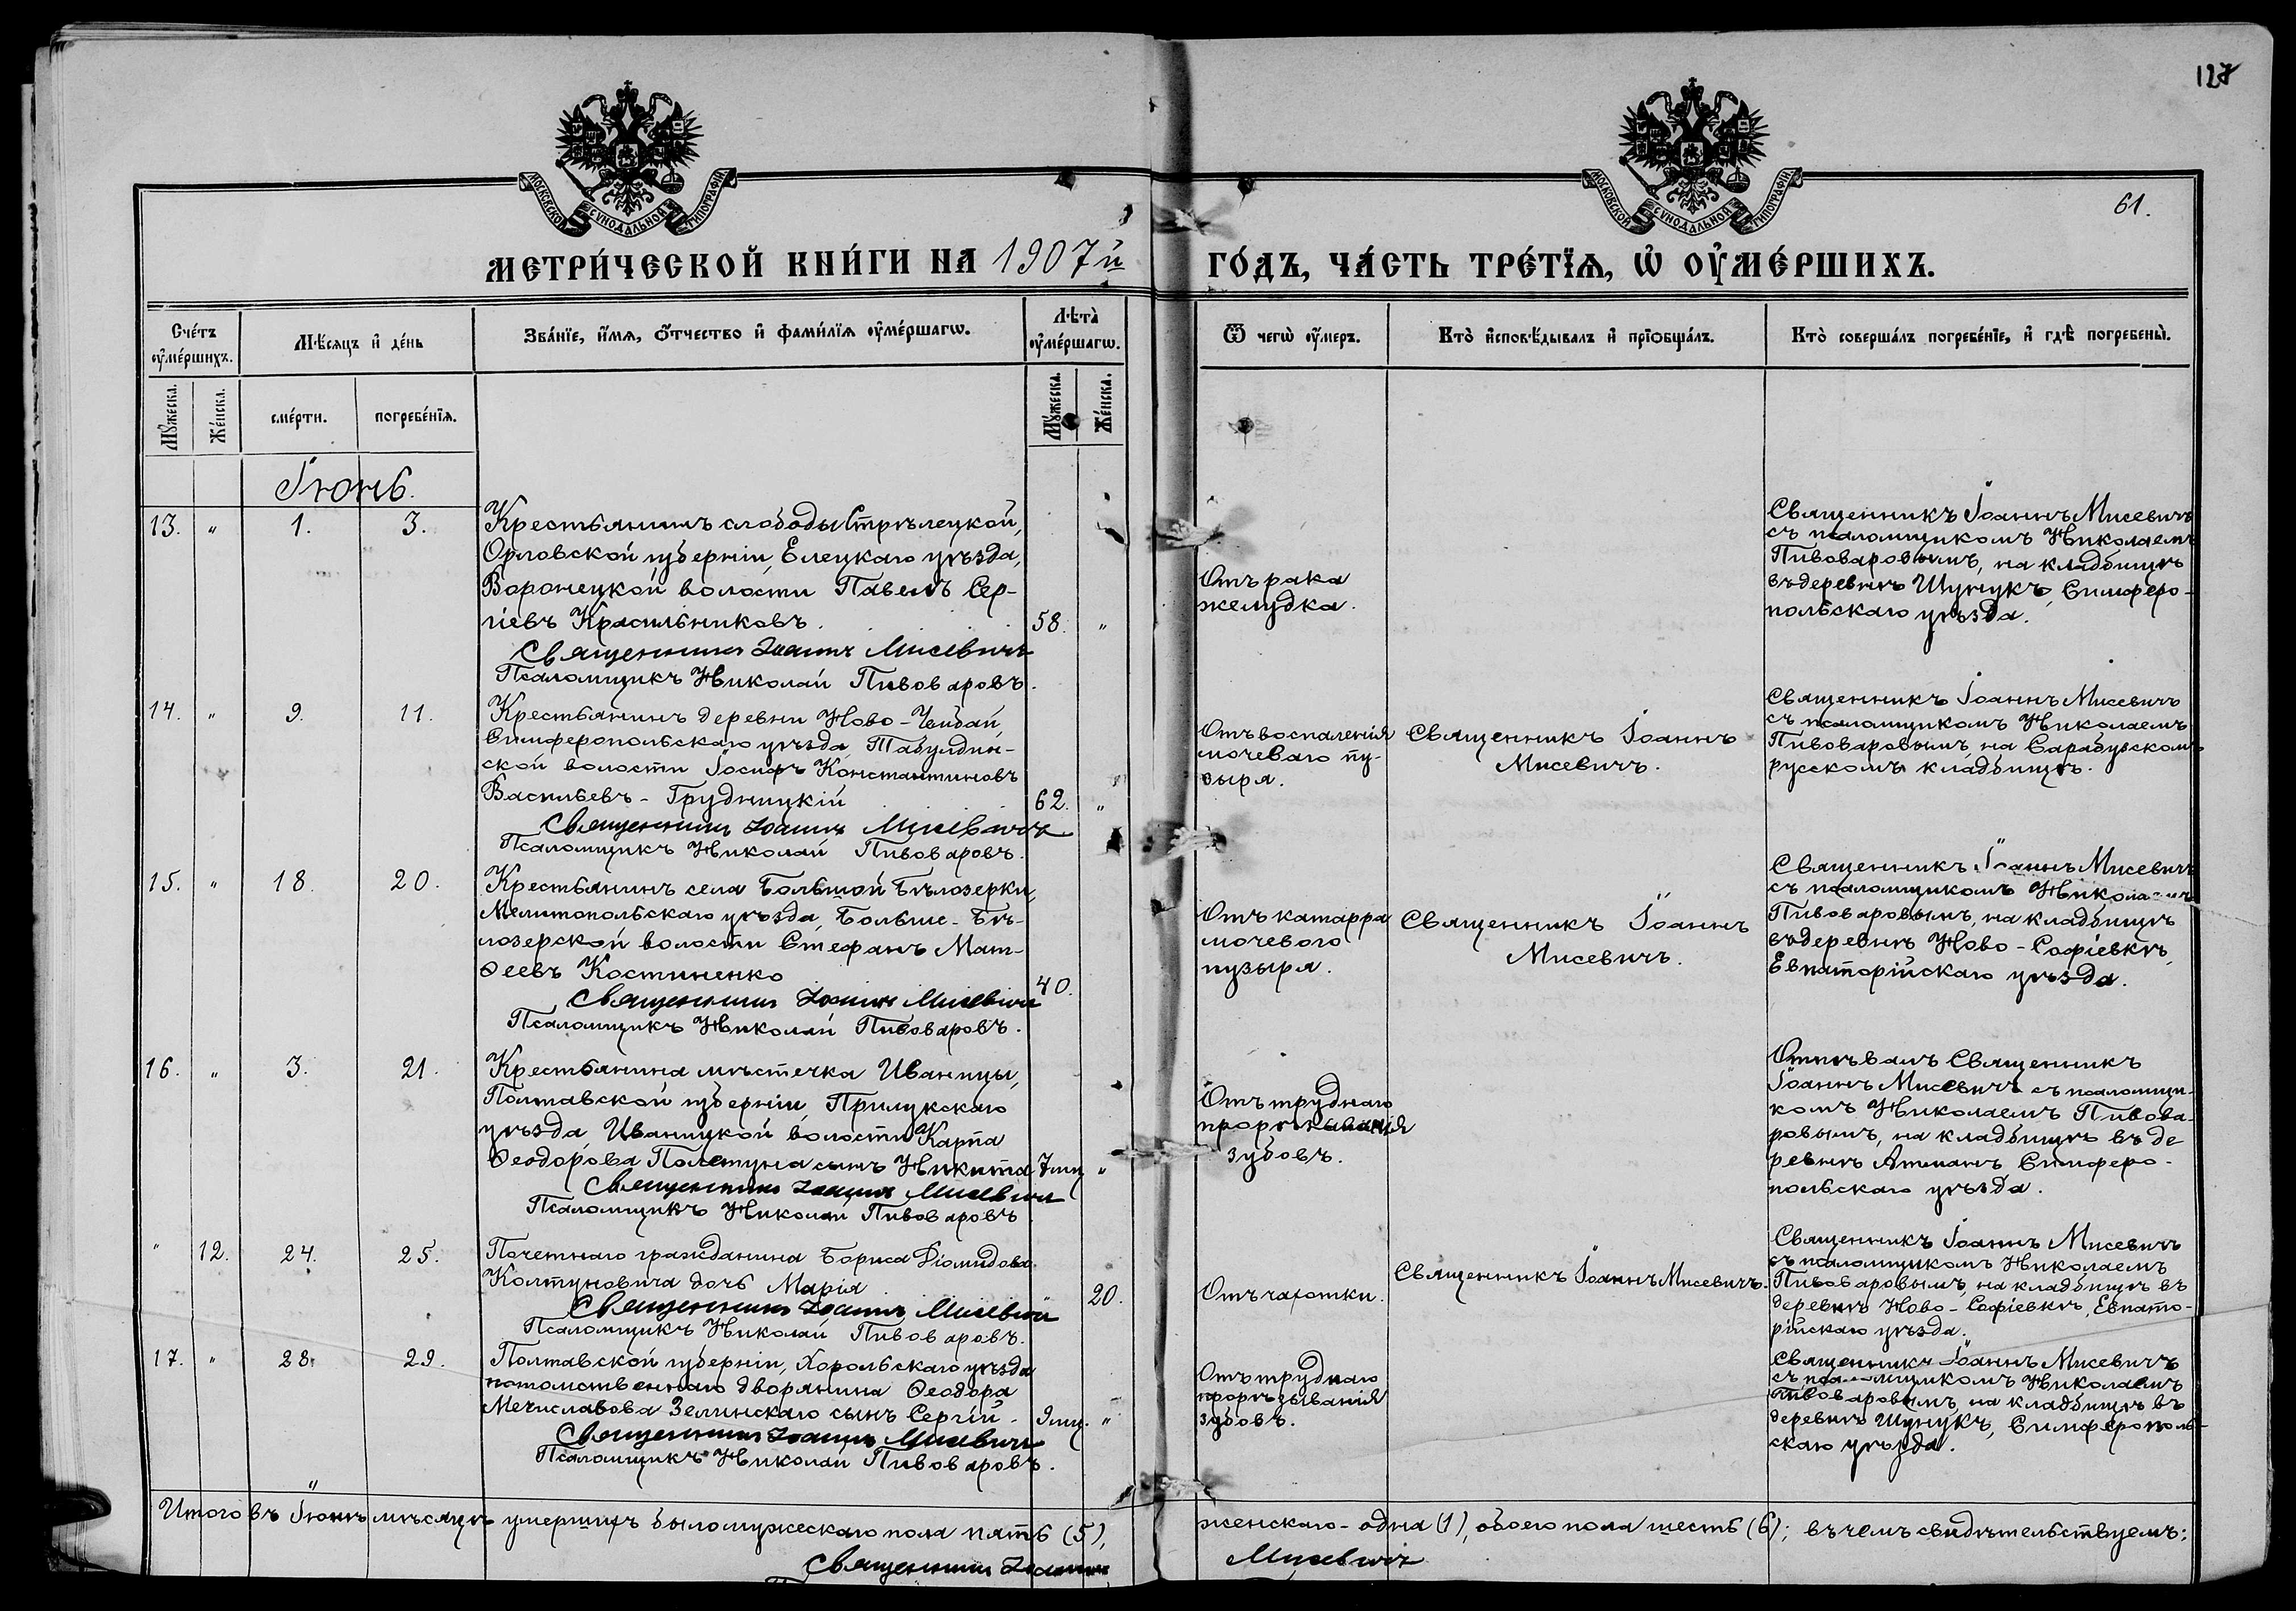 127
МОСКОВСКОЙ СѴНОДАЛЬНОЙ ТИПОГРАФІИ
МОСКОВСКОЙ СѴНОДАЛЬНОЙ ТИПОГРАФІИ
61.
МЕТРИ́ЧЕСКОЙ КНИ́ГИ НА 1907й ГО́ДЪ, ЧА́СТЬ ТРЕ́ТЇѦ, Ѡ҆ ОУ҆МЕ́РШИХЪ.
Сче́тъ оу҆ме́ршихъ.
Мѣ́сяцъ и҆ де́нь
Зва́нїе, и҆́мѧ, ѻ҆́тчество и҆ фами́лїѧ оу҆ме́ршагѡ.
Лѣта̀ оу҆ме́ршагѡ.
Ѿ чегѡ̀ оу҆́меръ.
Кто̀ и҆сповѣ́дывалъ и҆ прїобща́лъ.
Кто̀ соверша́лъ погребе́нїе, и҆ гдѣ̀ погребены̀.
Мꙋ́жеска.
Же́нска.
сме́рти.
погребе́нїѧ.
Мꙋ́жеска.
Же́нска.
Іюнь.
13. " 1. 3.
Крестьянинъ слободы Стрѣлецкой,
Орловской губерніи, Елецкаго уѣзда,
Воронецкой волости Павелъ Сер-
гіевъ Красильниковъ. 58. "
Священникъ Іоаннъ Мисевичъ
Псаломщикъ Николай Пивоваровъ.
Отъ рака
желудка.
Священникъ Іоаннъ Мисевичъ
съ псаломщикомъ Николаемъ
Пивоваровымъ, на кладбищѣ
въ деревнѣ Шунукъ, Симферо-
польскаго уѣзда.
14. " 9. 11.
Крестьянинъ деревни Ново-Чембай,
Симферопольскаго уѣзда, Табулдин-
ской волости Іосифъ Константиновъ
Васильевъ-Грудницкій 62. "
Священникъ Іоаннъ Мисевичъ
Псаломщикъ Николай Пивоваровъ.
Отъ воспаленія
мочеваго пу-
зыря.
Священникъ Іоаннъ
Мисевичъ.
Священникъ Іоаннъ Мисевичъ
съ псаломщикомъ Николаемъ
Пивоваровымъ, на Сарабузскомъ
русскомъ кладбищѣ.
15. " 18. 20.
Крестьянинъ села Большой Бѣлозерки,
Мелитопольскаго уѣзда, Больше-Бѣ-
лозерской волости Стефанъ Мат-
ѳеевъ Костиненко 40.
Священникъ Іоаннъ Мисевичъ
Псаломщикъ Николай Пивоваровъ.
Отъ катарра
мочевого
пузыря.
Священникъ Іоаннъ
Мисевичъ.
Священникъ Іоаннъ Мисевичъ
съ псаломщикомъ Николаемъ
Пивоваровымъ, на кладбищѣ
въ деревнѣ Ново-Софіевкѣ,
Евпаторійскаго уѣзда.
16. " 3. 21.
Крестьянина мѣстечка Иваницы,
Полтавской губерніи, Прилукскаго
уѣзда, Иваницкой волости Карпа
Ѳеодорова Полетуна сынъ Никита 7 мц. "
Священникъ Іоаннъ Мисевичъ
Псаломщикъ Николай Пивоваровъ
Отъ труднаго
прорѣзыванія
зубовъ.
Отпѣвалъ Священникъ
Іоаннъ Мисевичъ съ псаломщи-
комъ Николаемъ Пивова-
ровымъ, на кладбищѣ въ де
ревнѣ Атманъ, Симферо-
польскаго уѣзда.
" 12. 24. 25.
Почетнаго гражданина Бориса Діомидова
Колтуновича дочь Марія 20.
Священникъ Іоаннъ Мисевичъ
Псаломщикъ Николай Пивоваровъ.
Отъ чахотки.
Священникъ Іоаннъ Мисевичъ.
Священникъ Іоаннъ Мисевичъ
съ псаломщикомъ Николаемъ
Пивоваровымъ, на кладбищѣ въ
деревнѣ Ново-Софіевкѣ, Евпато-
рійскаго уѣзда.
17. " 28. 29.
Полтавской губерніи, Хорольскаго уѣзда
потомственнаго дворянина Ѳеодора
Мечиславова Зелинскаго сынъ Сергій. 9 мц. "
Священникъ Іоаннъ Мисевичъ
Псаломщикъ Николай Пивоваровъ.
Отъ труднаго
прорѣзыванія
зубовъ.
Священникъ Іоаннъ Мисевичъ
съ псаломщикомъ Николаемъ
Пивоваровымъ, на кладбищѣ въ
деревнѣ Шунукъ, Симферополь-
скаго уѣзда.
Итого въ Іюнѣ мѣсяцѣ умершихъ было мужескаго пола пять (5), женскаго - одна (1), обоего пола шесть (6); въ чемъ свидѣтельствуемъ:
Священникъ Іоаннъ Мисевичъ